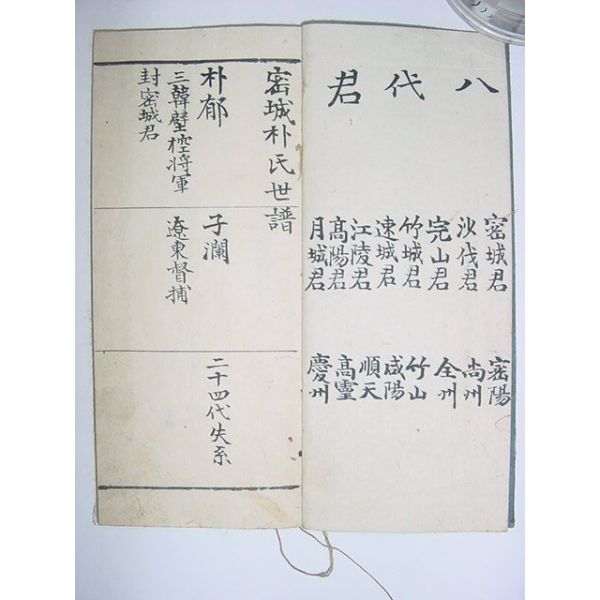 八代君
密城君 密陽
沙伐君 尙州
完山君 全州
竹城君 竹山
速城君 咸陽
江陵君 順天
髙陽君 髙靈
月城君 慶州
密城朴氏世譜
朴郁 子瀾 二十四代失系
三韓壁控将軍 遼東督捕
封密城君